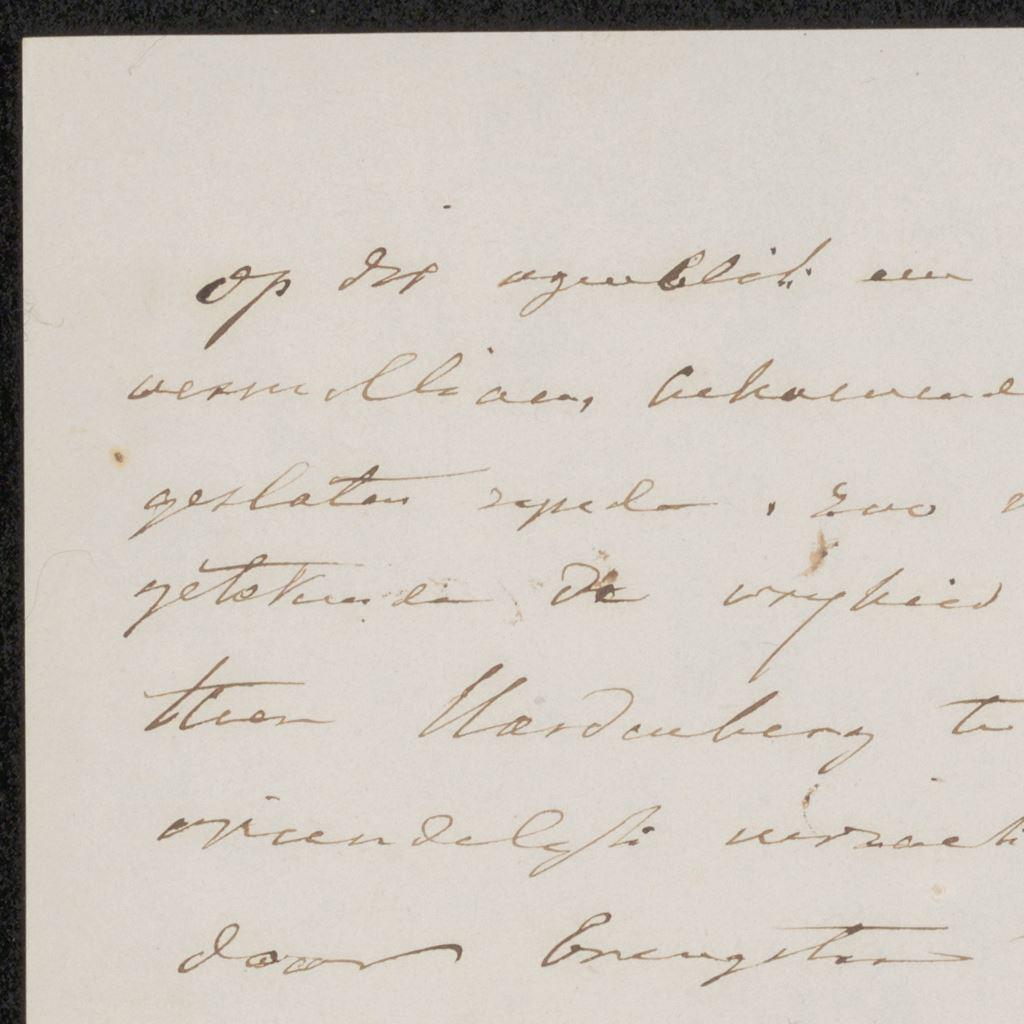 op dit ogenblik een
vermillioen, behoevende
gesloten zynde, zoo
getekende de vryheid
Heer Hardenberg te
vriendelyk verzoek
door brengster